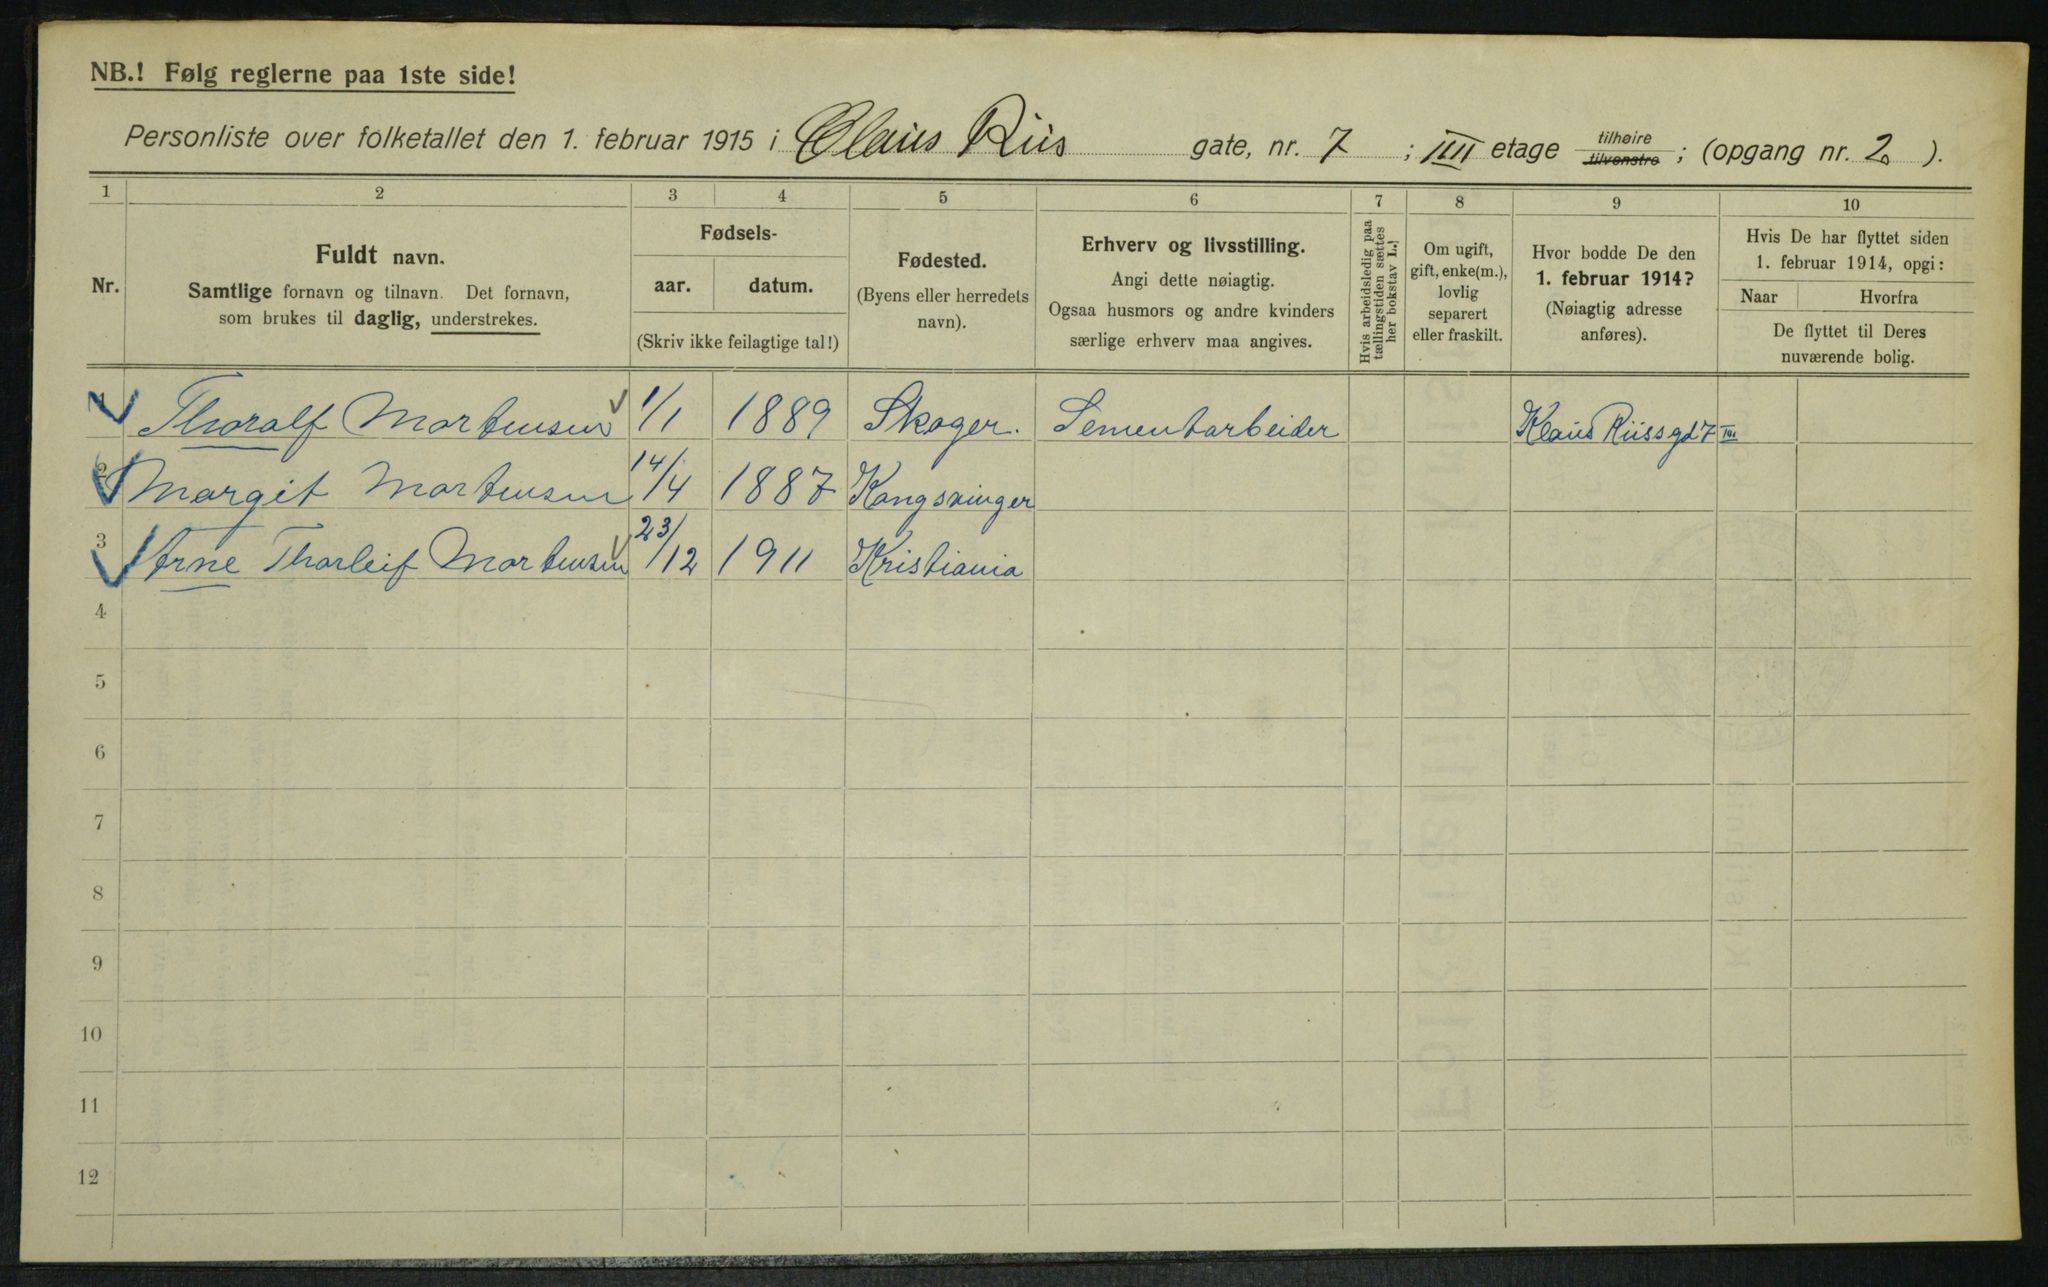 NB.! Følg reglerne paa 1ste side!
Personliste over folketallet den 1. februar 1915 i Claus Riis gate, nr. 7 ; IIII etage tilhøire tilvenstre ; (opgang nr. 2 ).
1 2 3 4 5 6 7 8 9 10
Nr.
Fuldt navn.
Samtlige fornavn og tilnavn. Det fornavn,
som brukes til daglig, understrekes.
Fødsels-
aar. datum.
(Skriv ikke feilagtige tal!)
Fødested.
(Byens eller herredets
navn).
Erhverv og livsstilling.
Angi dette nøiagtig.
Ogsaa husmors og andre kvinders
særlige erhverv maa angives.
Hvis arbeidsledig paa
tællingstiden sættes
her bokstav L.!
Om ugift,
gift, enke(m.),
lovlig
separert
eller fraskilt.
Hvor bodde De den
1. februar 1914?
(Nøiagtig adresse
anføres).
Hvis De har flyttet siden
1. februar 1914, opgi:
Naar Hvorfra
De flyttet til Deres
nuværende bolig.
1 Thoralf Mortensen 1/1 1889 Skoger. Sementarbeider Klaus Riisgd 7 III
2 Margit Mortensen 14/4 1887 Kongsvinger
3 Arne Thorleif Mortensen 23/12 1911 Kristiania
4
5
6
7
8
9
10
11
12